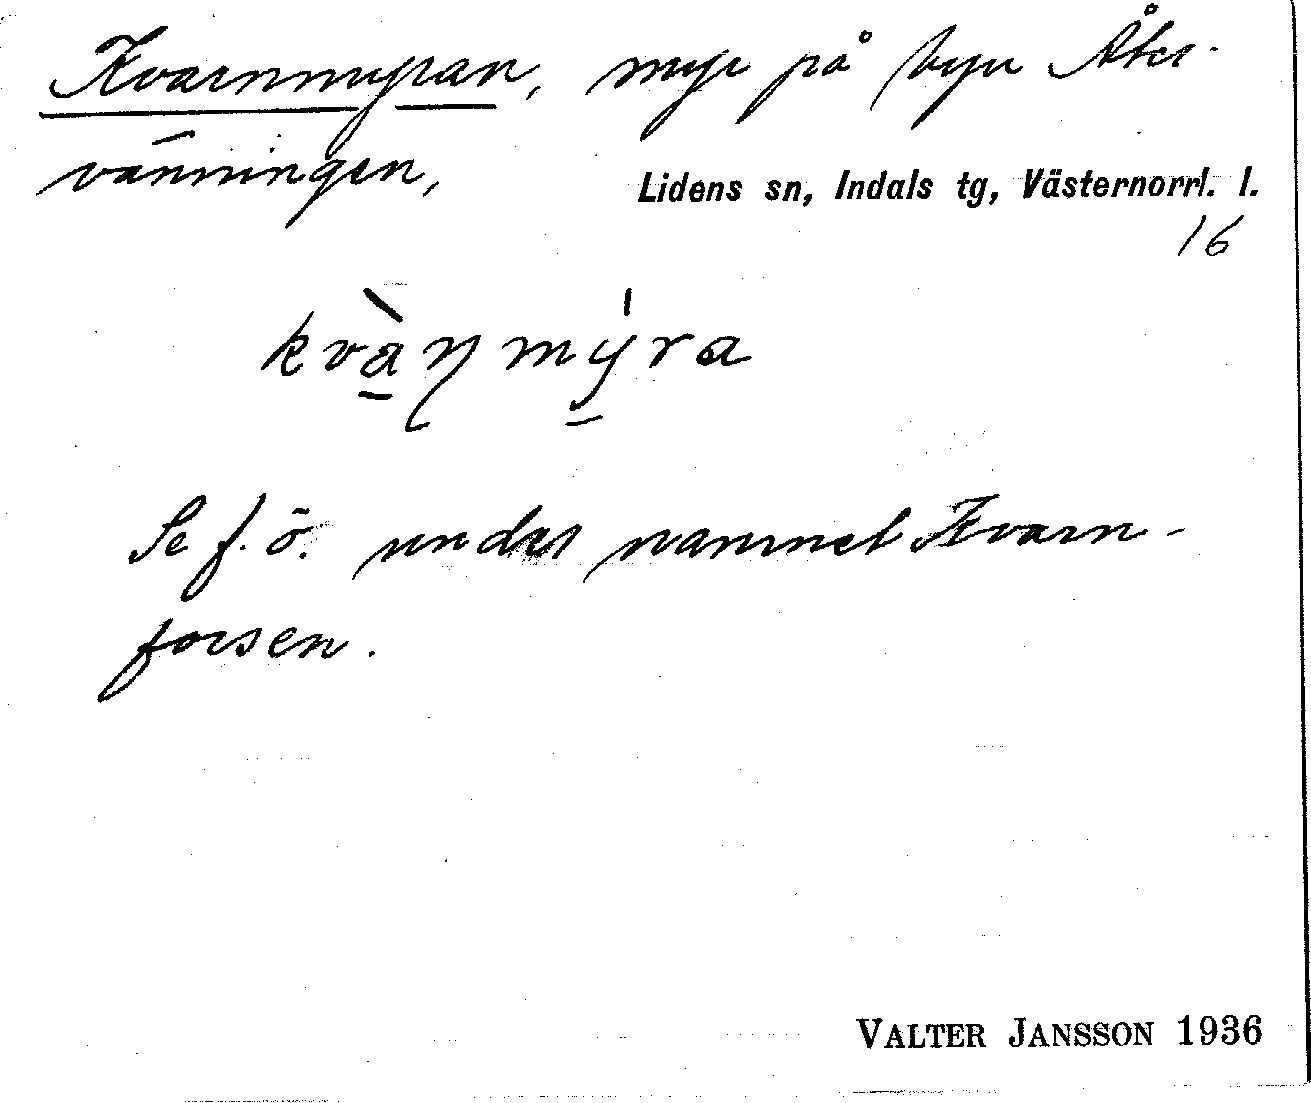 Kvarnmyran, myr på byn Åter-
vänningen,
Lidens sn, Indals tg, Västernorrl. l.
16
kvà̠ɳmý̠ra
Se f. ö. under namnet Kvarn-
forsen.
VALTER JANSSON 1936